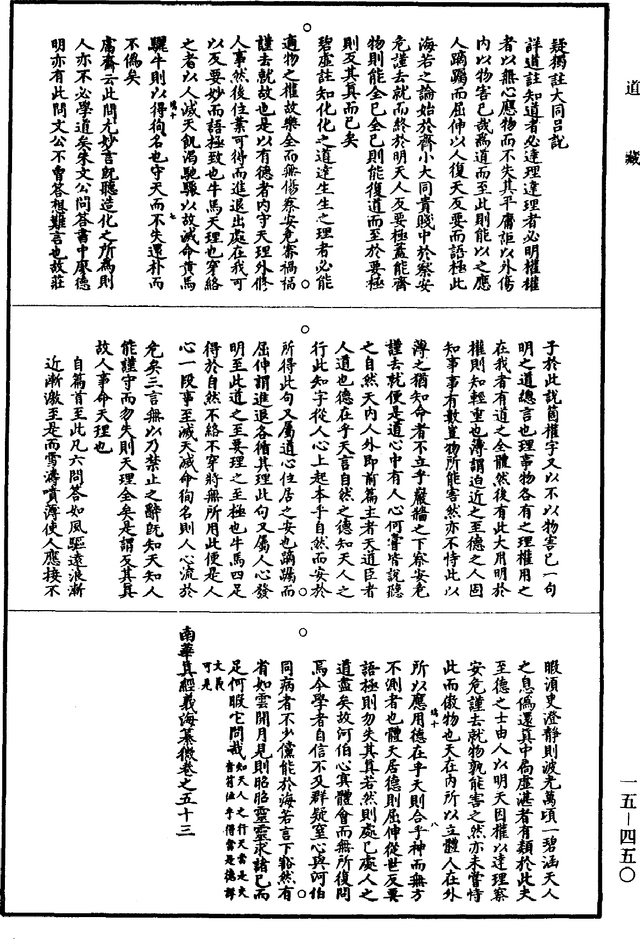 道藏
疑獨註大同呂說
詳道註知道者必達理達理者必明權權
者以無心應物而不失其平庸詎以外傷
內以物害己哉為道而至此則能以之應
人蹢躅而屈伸以人復天反要而語極此
海若之論始於齊小大同貴賤中於察安
危謹去就而終於明天人反要極蓋能齊
物則能全己全己則能復道而至於要極
則反其真而已矣
碧虛註知化化之道達生生之理者必能
適物之權故樂全而無傷察安危審禍福
謹去就故也是以有德者內守天理外修
人事然後位業可得而進退出處在我可
以反要妙而語極致也牛馬天理也穿絡
之者以人滅天飢渴馳驟以故滅命貴馬
驪牛則以得徇名也守天而不失還朴而
不偽矣
鬳齋云此問尤妙言既聽造化之所為則
人亦不必學道矣朱文公問答書中廖德
明亦有此問文公不曾答想難言也故莊
子於此說箇權字又以不以物害己一句
明之道總言也理事物各有之理權用之
在我者有道之全體然後有此大用明於
權則知輕重也薄謂迫近之至德之人固
知事事有數豈物所能害然亦不恃此以
薄之猶知命者不立乎巖牆之下察安危
謹去就便是道心中有人心何嘗皆說聽
之自然天內人外即前篇主者天道臣者
人道也德在乎天言自然之德知天人之
行此知字從人心上起本乎自然而安於
所得此句又屬道心位居之安也蹢躅而
屈伸謂進退各循其理此句又屬人心發
明至此道之至要理之至極也牛馬四足
得於自然不絡不穿將無所用此便是人
心一段事至滅天滅命徇名則人心流於
危矣三言無以乃禁止之辭既知天知人
能謹守而勿失則天理全矣是謂反其真
故人事命天理也
自篇首至此凡六問答如風驅遠浪漸
近漸激至是而雪濤噴薄使人應接不
暇須臾澄靜則波光萬頃一碧涵天人
之息偽還真中扃虛湛者有類於此夫
至德之士由人以明天因權以達理察
安危謹去就物孰能害之然亦未嘗恃
此而傲物也天在內所以立體人在外
所以應用德在乎天則合乎神而無方
不測者也體天居德則屈伸從世反要
語極則勿失其真若然則處己處人之
道盡矣故河伯心冥體會而無所復問
焉今學者自信不及群疑窒心與河伯
同病者不少儻能於海若言下豁然有
省如雲開月見則昭昭靈靈求諸己而
足何暇它問哉知天人之行天當是夫
音符位乎得當是德詳
文義
可見
南華真經義海纂微卷之五十三
一五—四五〇